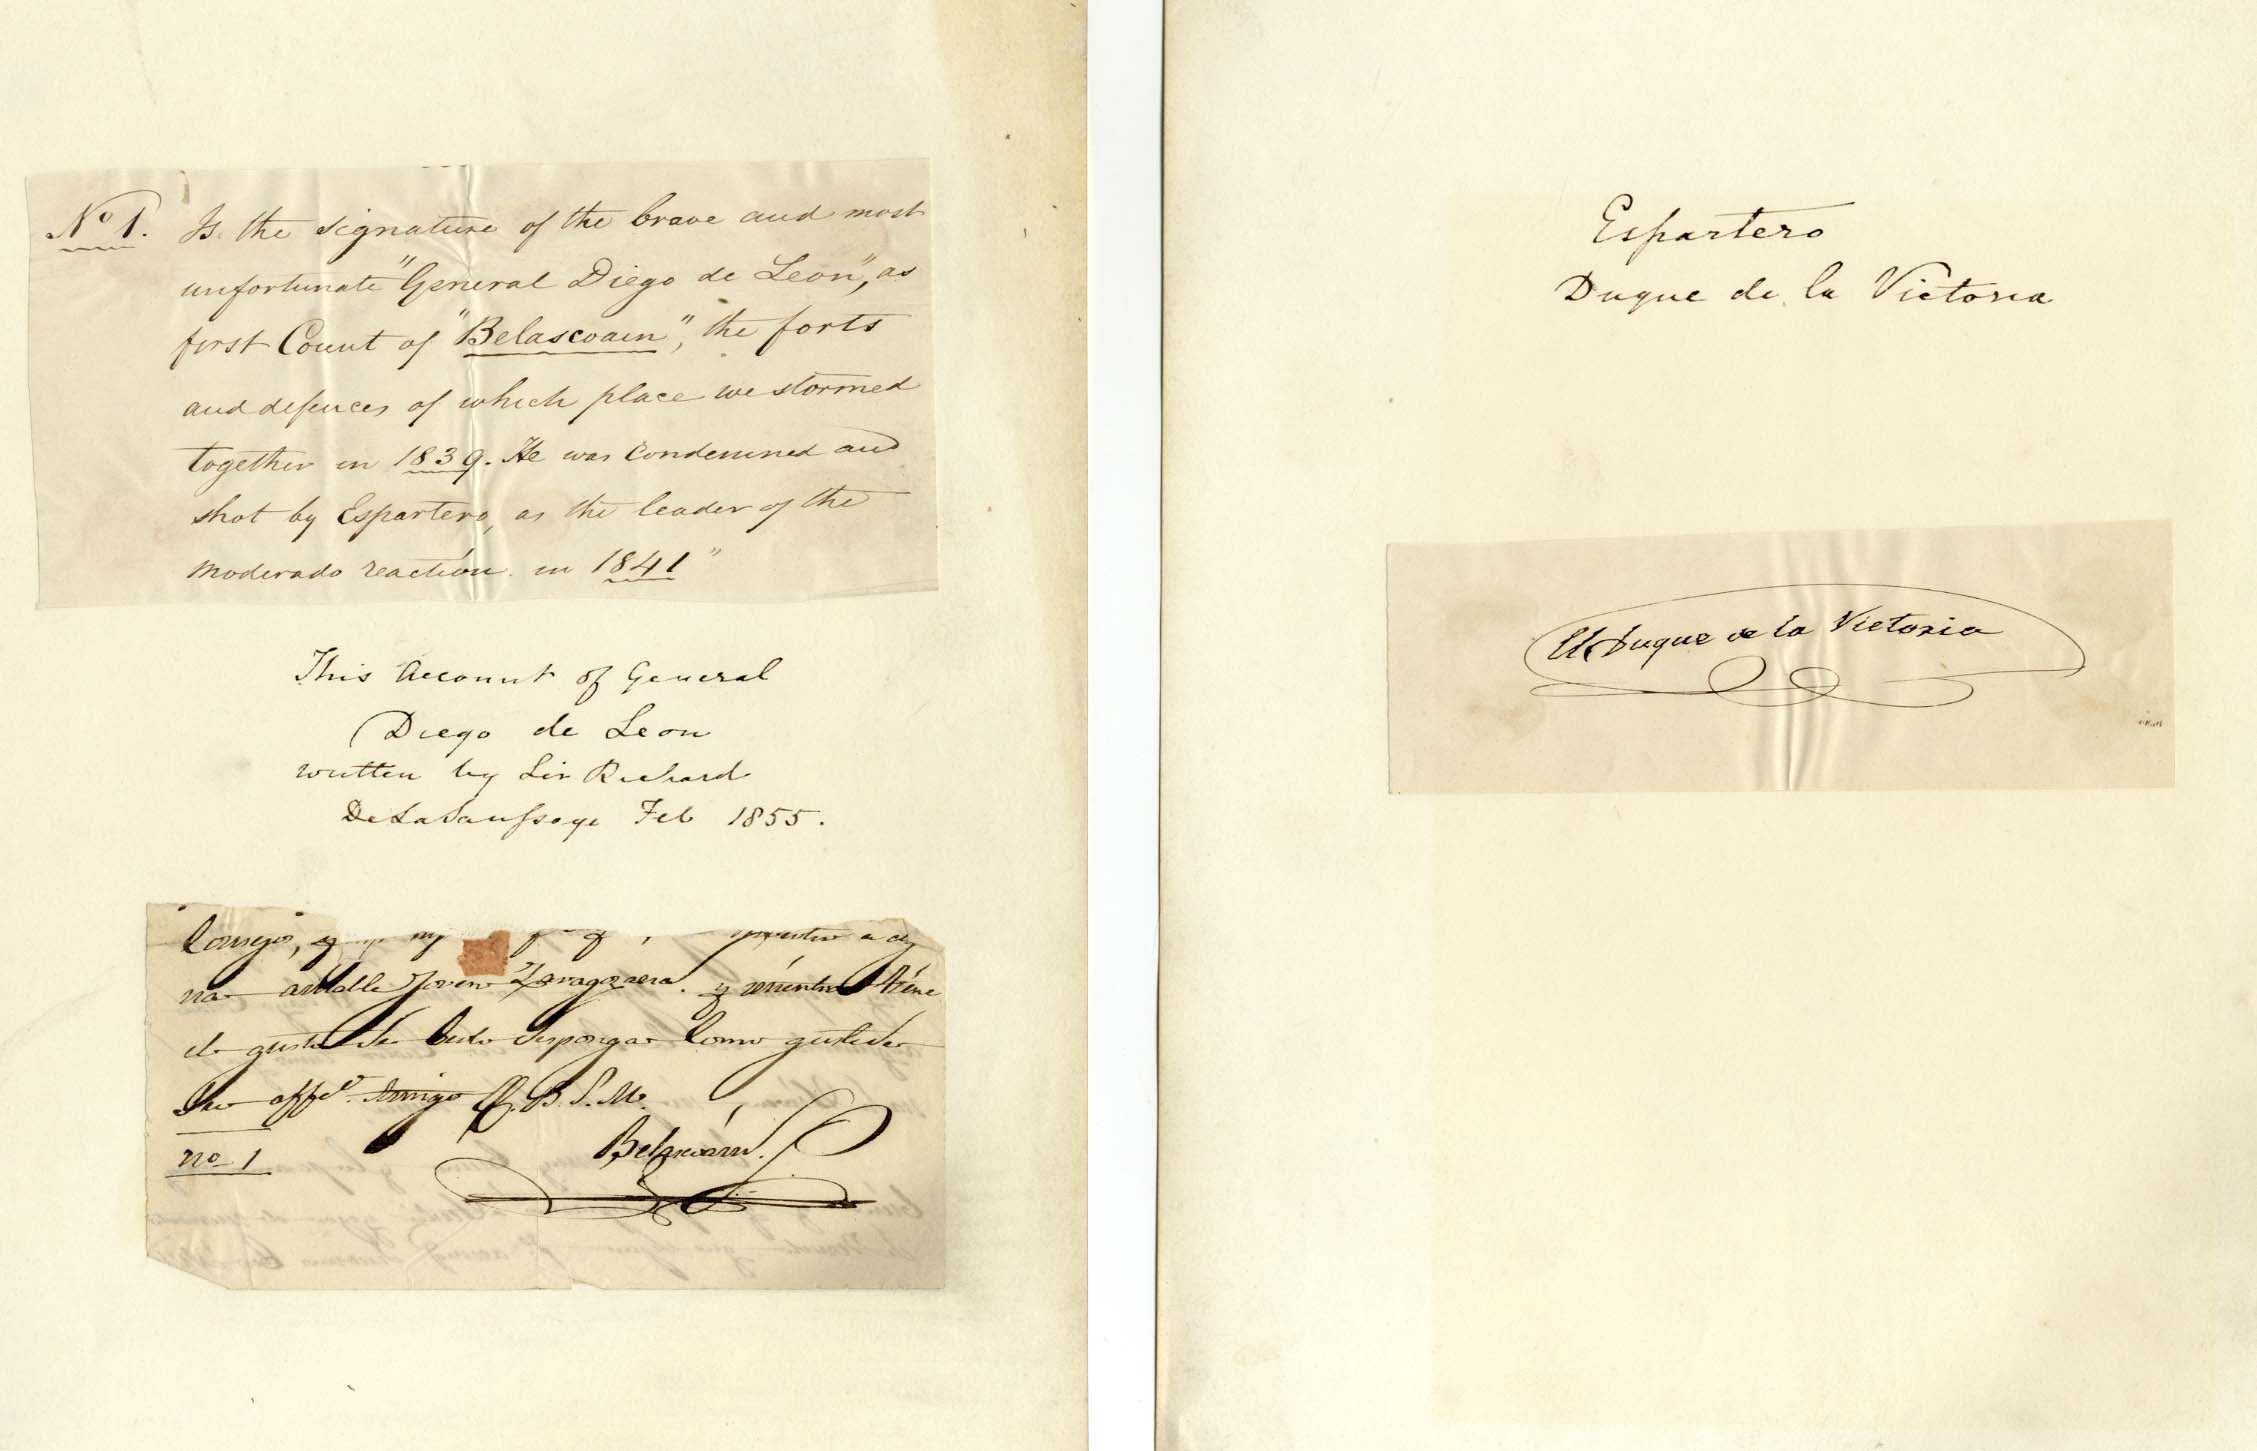 No 1. Is the signature of the brave and most
unfortunate "General Diego de Leon", as
first Count of "Belascoain", the forts
and defences of which place we stormed
together in 1839. He was condemned and
shot by Espartero, as the leader of the
moderado reaction in 1841"
This Account of General
Diego de Leon
written by Sir Richard
Feb 1855.
na amable Joven Zaragozana. y
el gusto de disponga como guste de
Su affo. Amigo Q.B.S.M.
Belascoain.
no 1
Espartero
Duque de la Victoria
El Duque de la Victoria